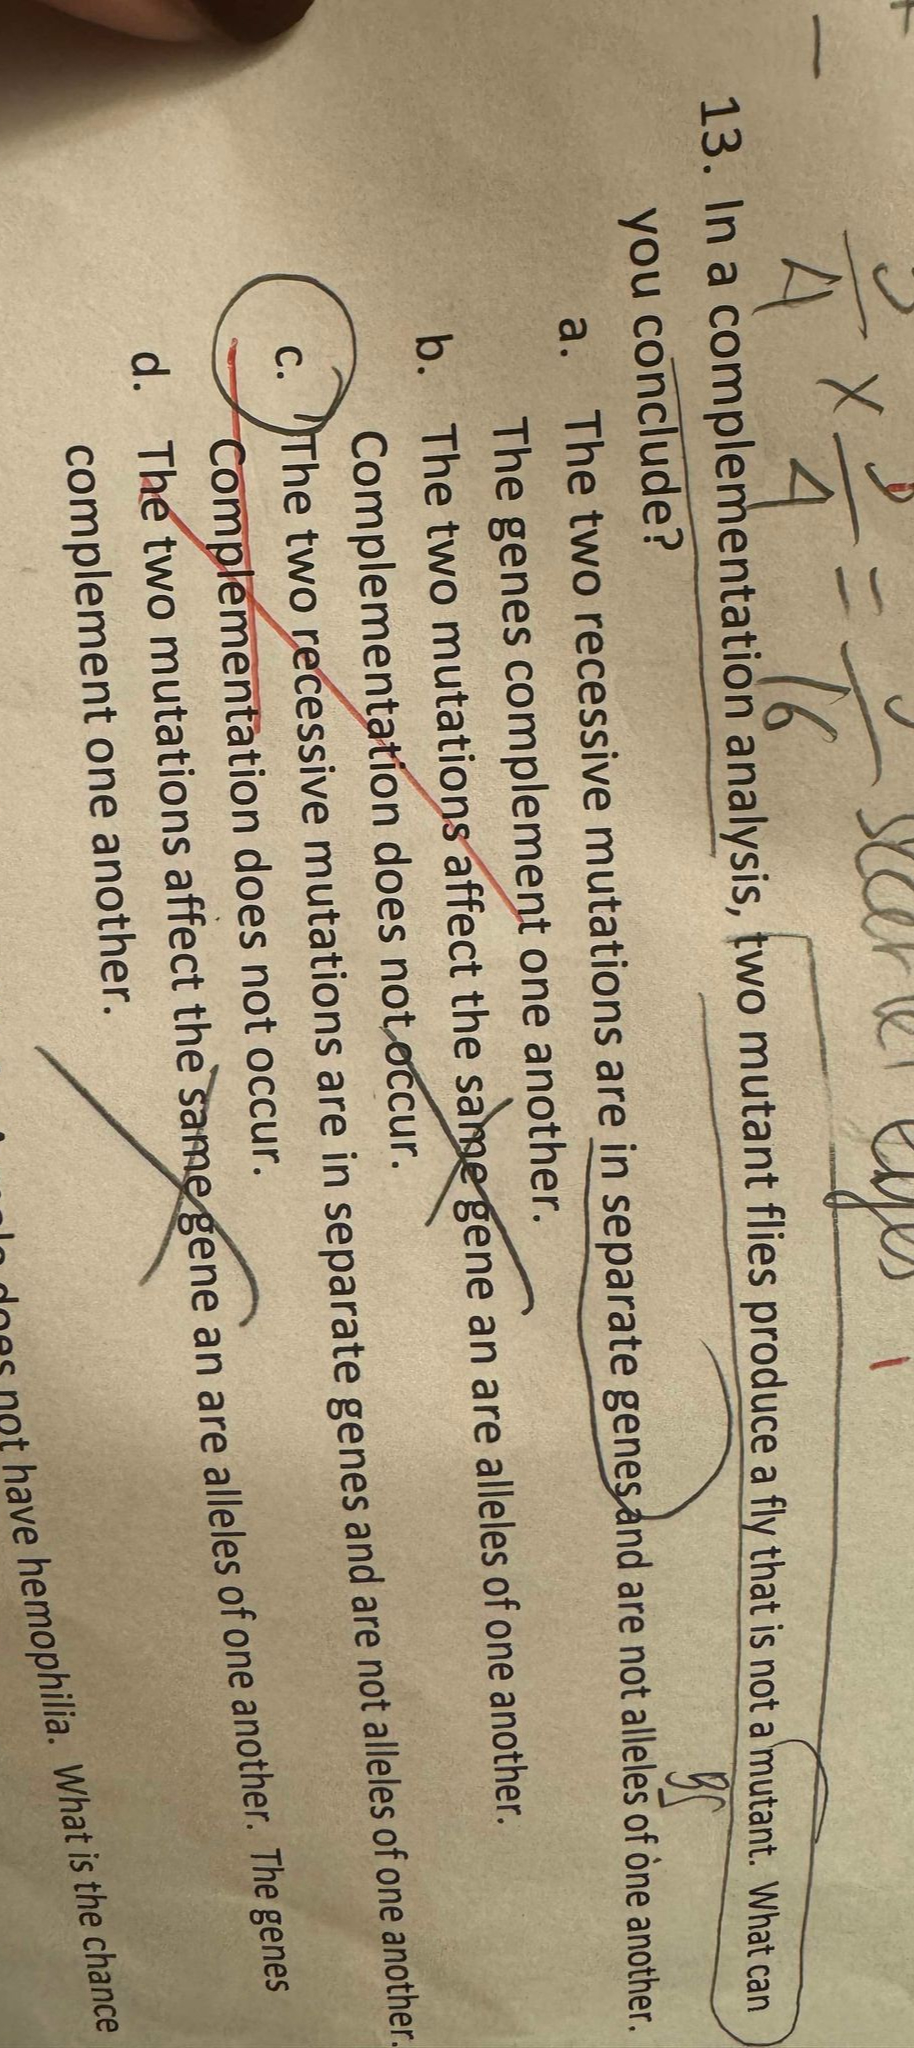 3/4 x 3/4 = 9/16 scarlet eyes
13. In a complementation analysis, two mutant flies produce a fly that is not a mutant. What can
you conclude?
a. The two recessive mutations are in separate genes and are not alleles of one another.
The genes complement one another.
b. The two mutations affect the same gene an are alleles of one another.
Complementation does not occur.
c. The two recessive mutations are in separate genes and are not alleles of one another.
Complementation does not occur.
d. The two mutations affect the same gene an are alleles of one another. The genes
complement one another.
does not have hemophilia. What is the chance